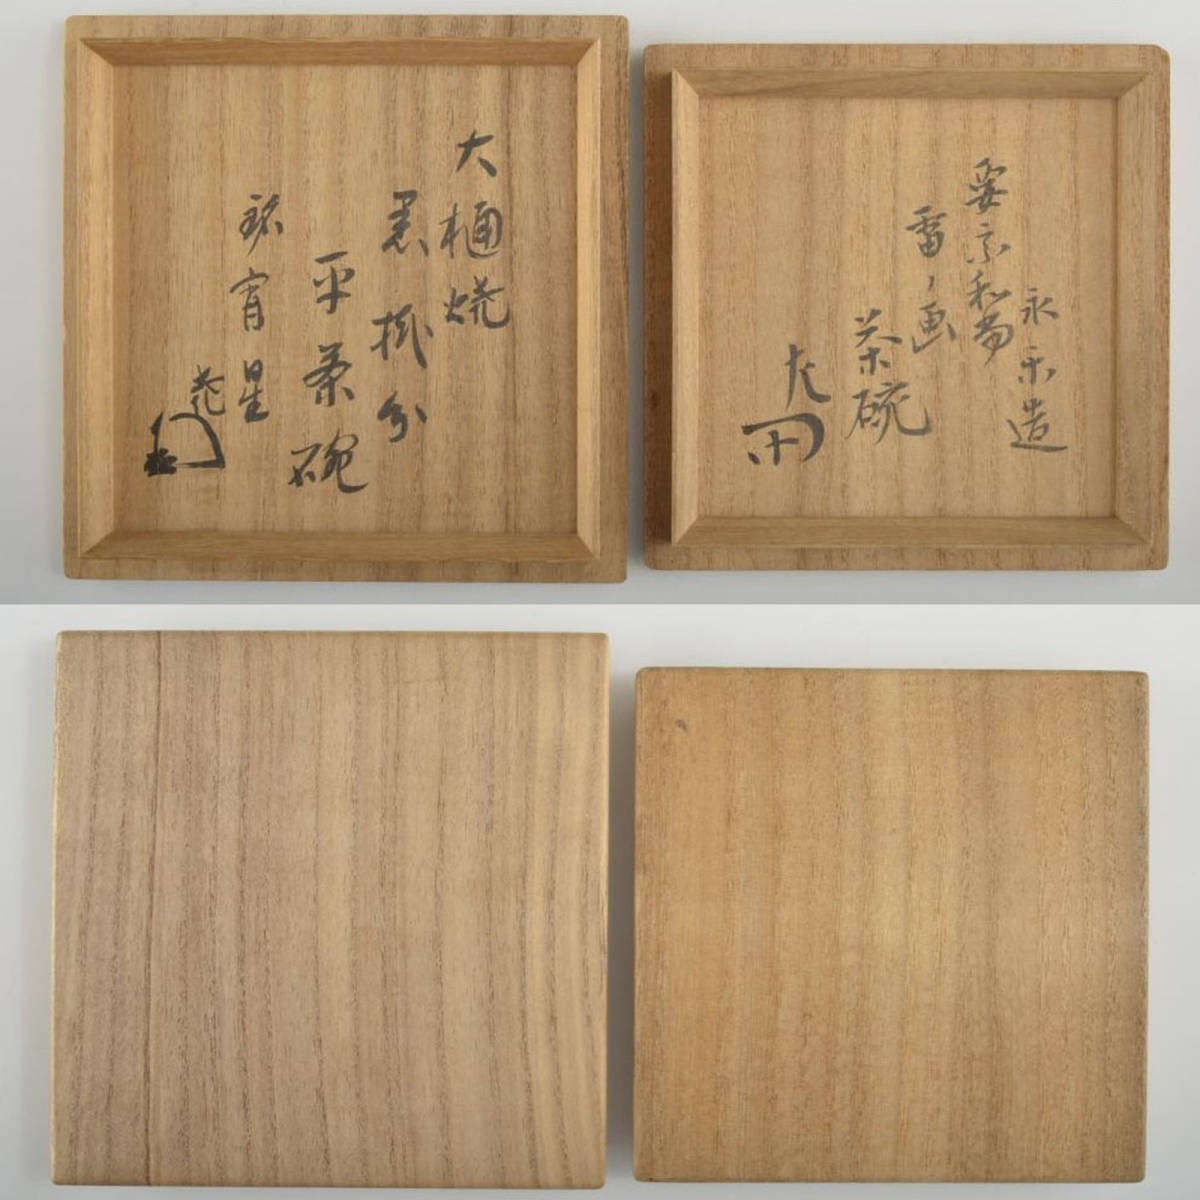 大樋焼
黒掛分
平茶碗
銘宵星
花
永樂造
安南和蘭
雷ノ画
茶碗
左